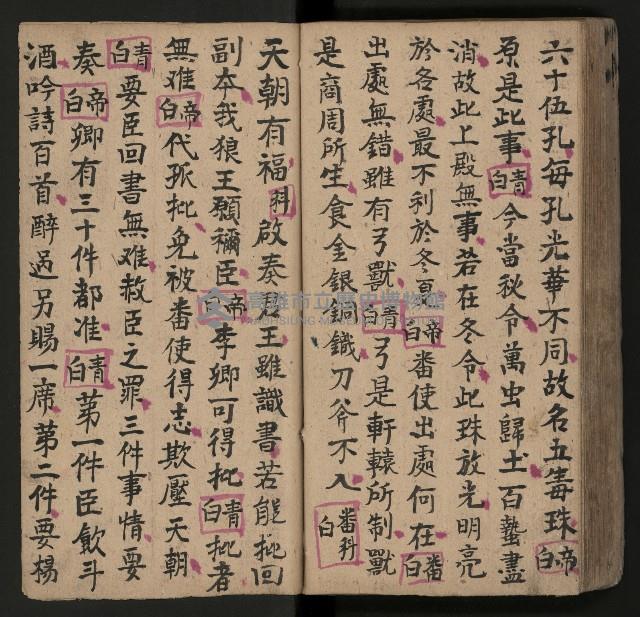 六十伍孔每孔光華不同故名五毒珠帝白
原是此事青白今當秋令萬虫歸土百蟄盡
消故此上殿無事若在冬令此珠放光明亮
於各處最不利於冬夏帝白番使出處何在番白
出處無錯雖有弓獸青白弓是軒轅所制獸
是商周所生食金銀銅鐵刀斧不入番科白
天朝有福科啟奏君王雖識書若能批回
副本我狼王願稱臣帝白李卿可得批青白批者
無难帝白代孤批免被番使得志欺壓天朝
青白要臣回書無难赦臣之罪三件事情要
奏帝白卿有三十件都准青白第一件臣飲斗
酒吟詩百首醉過另賜一席第二件要楊
高雄市立歷史博物館
KAOHSIUNG MUSEUM OF HISTORY